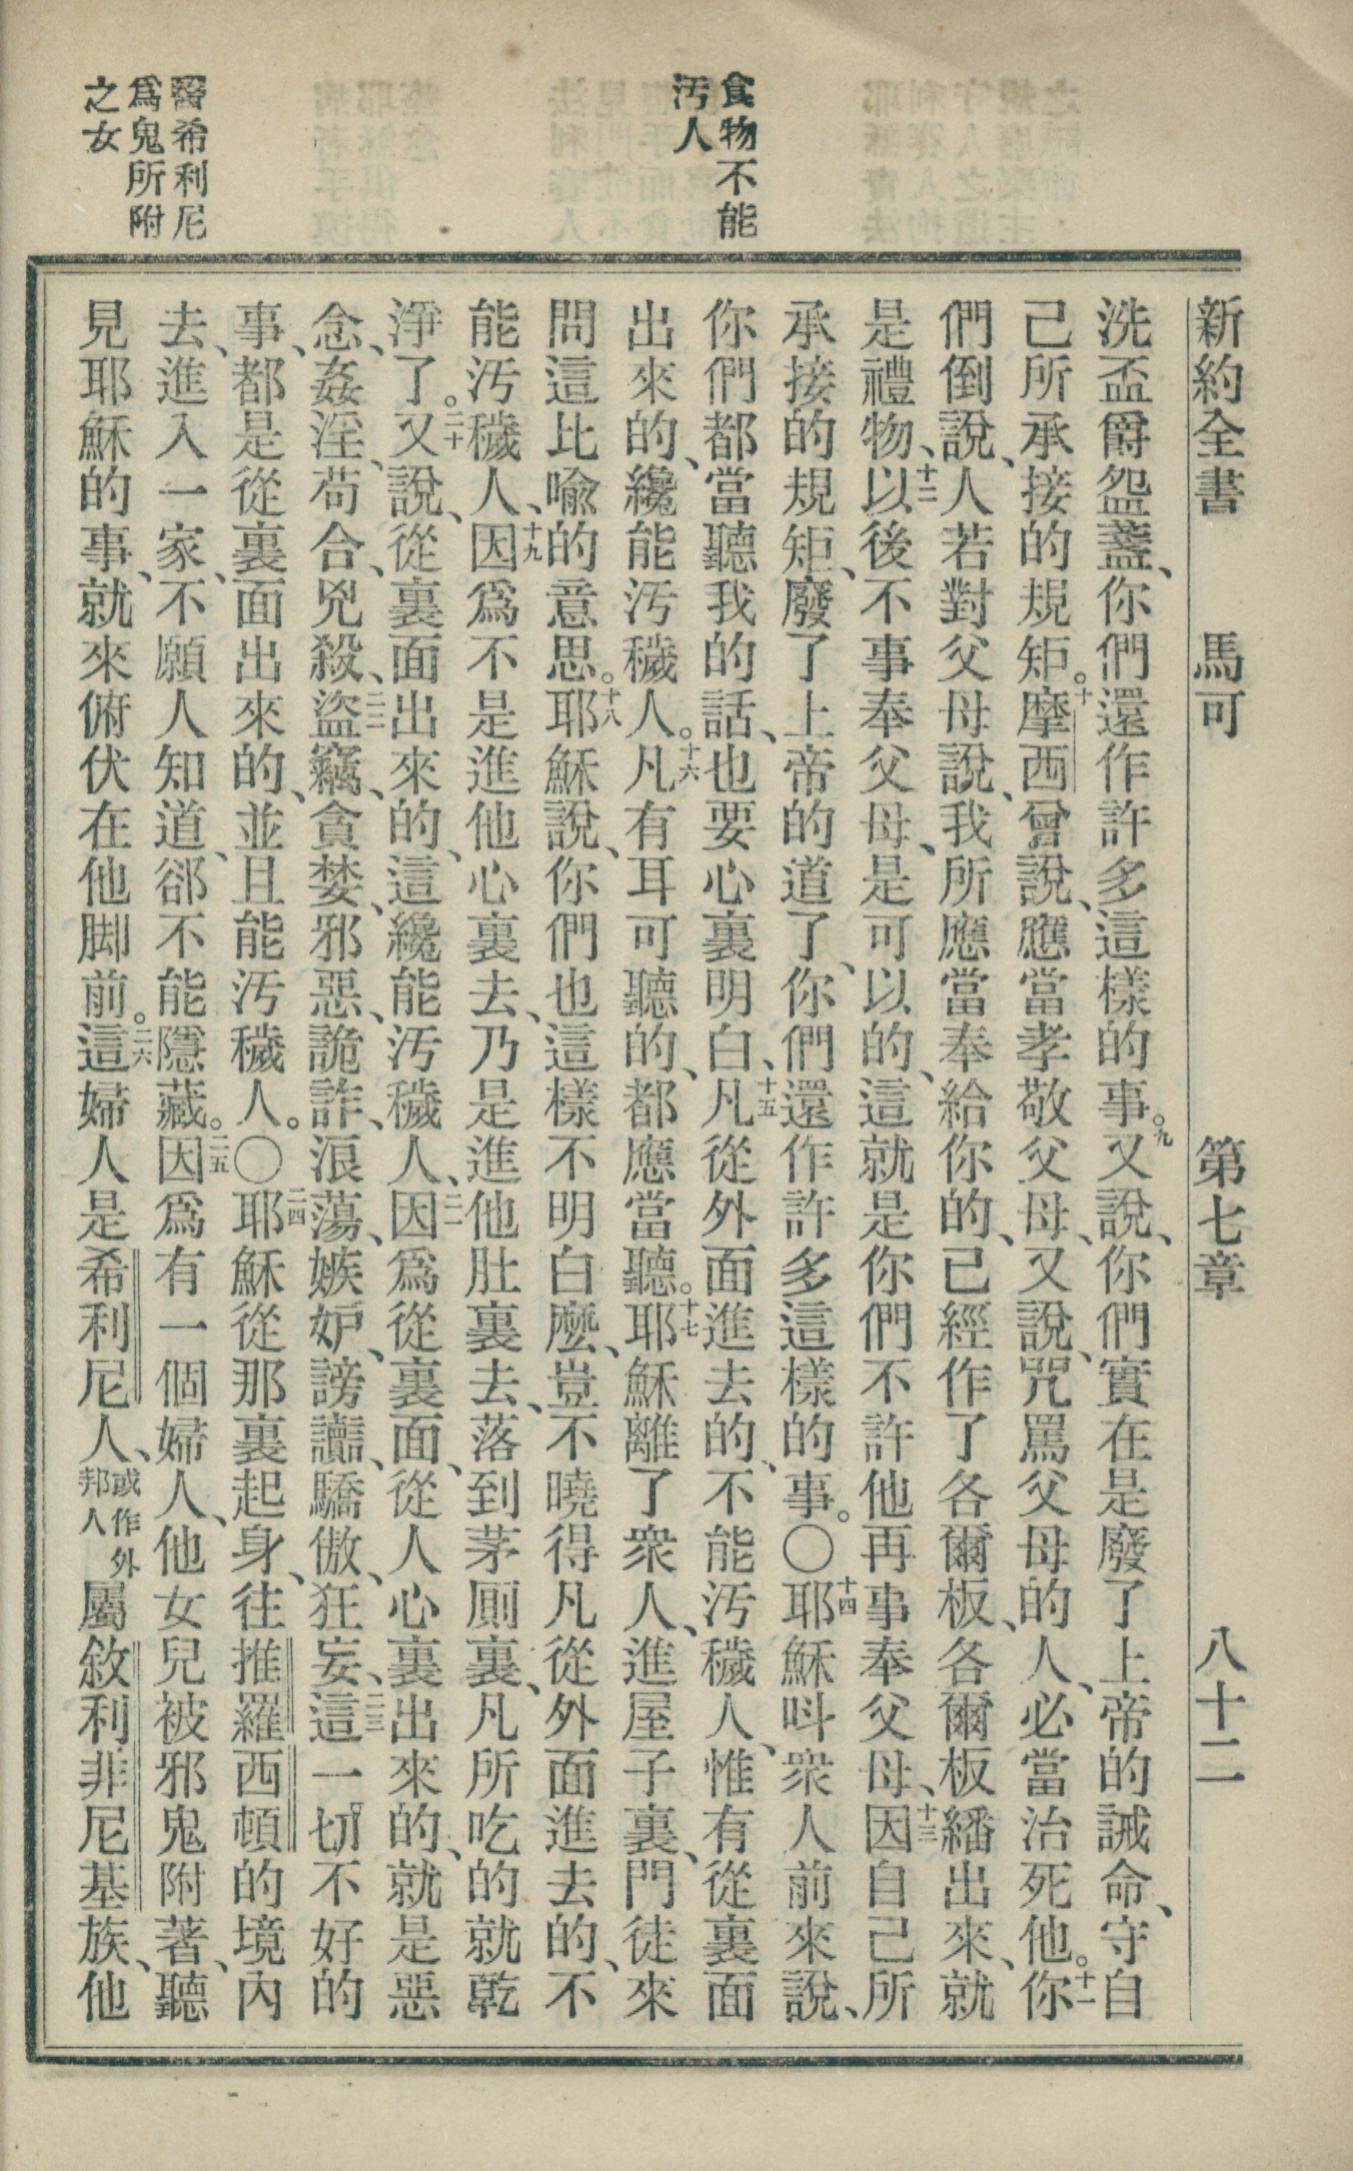 新約全書　馬可　第七章　八十二
洗盃爵盌盞、你們還作許多這樣的事。九又說、你們實在是廢了上帝的誡命、守自
己所承接的規矩。十摩西曾說、應當孝敬父母、又說、咒罵父母的人、必當治死他。十一你
們倒說、人若對父母說、我所應當奉給你的、已經作了各爾板、各爾板繙出來、就
是禮物、十二以後不事奉父母、是可以的、這就是你們不許他再事奉父母、十三因自己所
承接的規矩、廢了上帝的道了、你們還作許多這樣的事。〇十四耶穌呌衆人前來說、
你們都當聽我的話、也要心裏明白、十五凡從外面進去的、不能汚穢人、惟有從裏面
出來的、纔能汚穢人。十六凡有耳可聽的、都應當聽。十七耶穌離了衆人、進屋子裏、門徒來
問這比喩的意思。十八耶穌說、你們也這樣不明白麼、豈不曉得凡從外面進去的、不
能汚穢人、十九因爲不是進他心裏去、乃是進他肚裏去、落到茅厠裏、凡所吃的就乾
淨了。二十又說、從裏面出來的、這纔能汚穢人、二一因爲從裏面、從人心裏出來的、就是惡
念、姦淫、苟合、兇殺、二二盜竊、貪婪、邪惡、詭詐、浪蕩、嫉妒、謗讟、驕傲、狂妄、二三這一切不好的
事、都是從裏面出來的、並且能汚穢人。〇二四耶穌從那裏起身、往推羅西頓的境內
去、進入一家、不願人知道、卻不能隱藏。二五因爲有一個婦人、他女兒被邪鬼附著、聽
見耶穌的事、就來俯伏在他脚前。二六這婦人是希利尼人、或作外邦人屬敘利非尼基族、他
食物不能
汚人
醫希利尼
爲鬼所附
之女